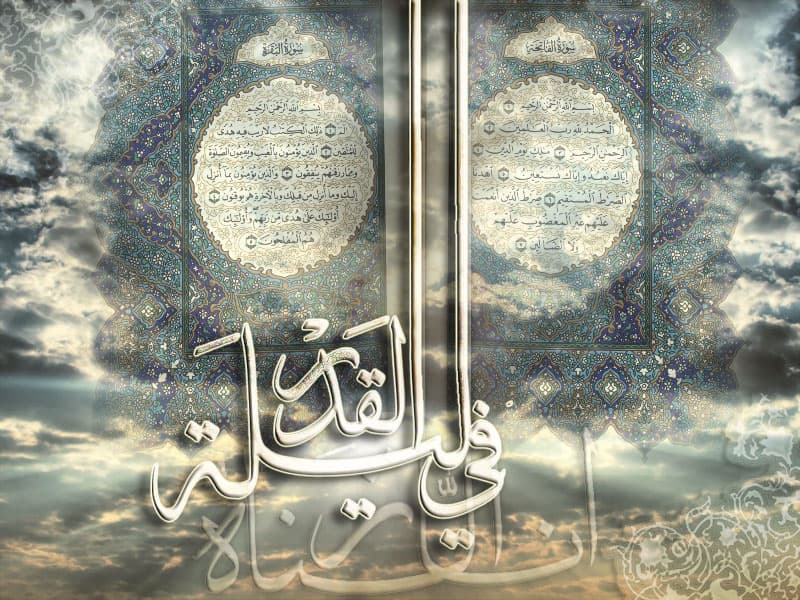 سورة الفاتحة
بسم الله الرحمن الرحيم
الحمد لله رب العلمين
الرحمن الرحيم ملك يوم الدين
إياك نعبد وإياك نستعين اهدنا
الصرط المستقيم صرط الذين أنعمت
عليهم غير المغضوب عليهم
ولا الضالين
سورة البقرة
بسم الله الرحمن الرحيم
الم ذلك الكتب لا ريب فيه هدى
للمتقين الذين يؤمنون بالغيب ويقيمون الصلوة
ومما رزقنهم ينفقون والذين يؤمنون بما أنزل
إليك وما أنزل من قبلك وبالآخرة هم يوقنون
أولئك على هدى من ربهم وأولئك
هم المفلحون
إنا أنزلناه
في ليلة القدر